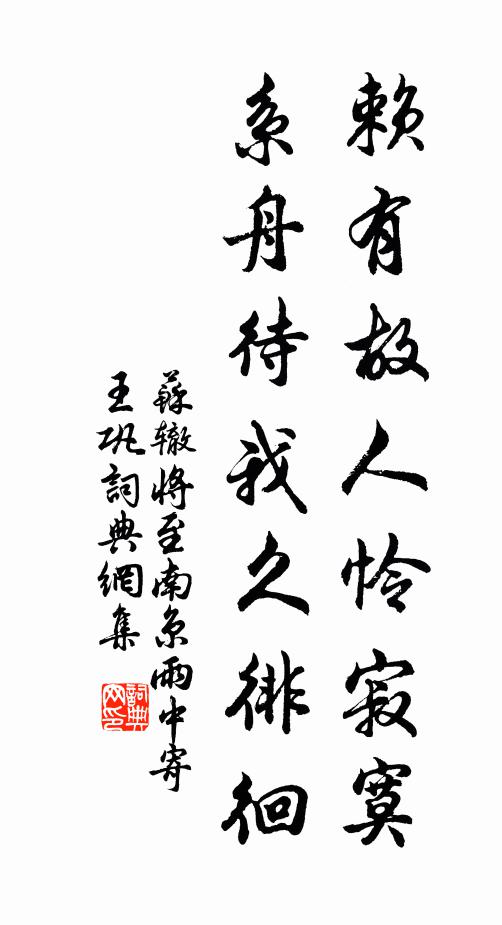 赖有故人怜寂寞
系舟待我久徘徊
蘇辙將至南京雨中寄
王巩詞典網集
詞典
网印